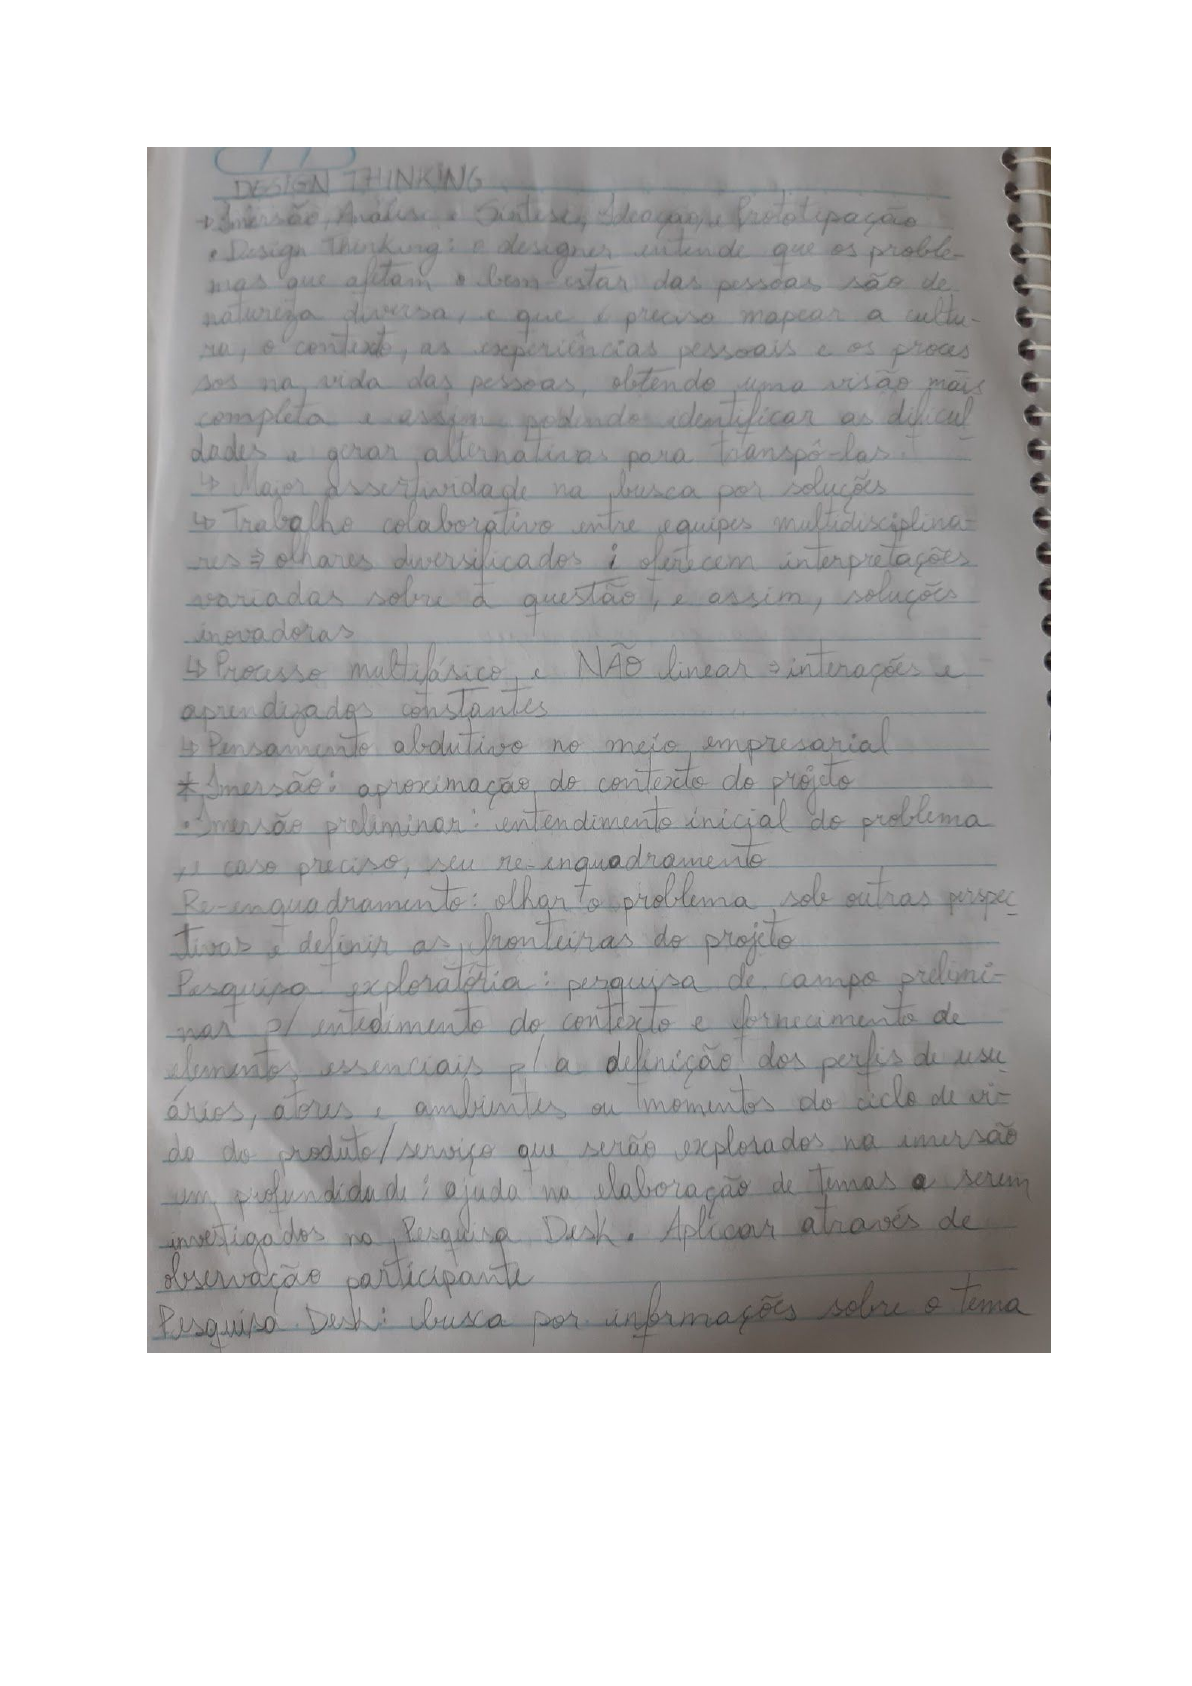 DESIGN THINKING
→ Imersão, Análise e Síntese, Ideação, e Prototipação
• Design Thinking: o designer entende que os proble-
mas que afetam o bem-estar das pessoas são de
natureza diversa, e que é preciso mapear a cultu-
ra, o contexto, as experiências pessoais e os proces
sos na vida das pessoas, obtendo uma visão mais
completa e assim podendo identificar as dificul
dades e gerar alternativas para transpô-las.
↳ Maior assertividade na busca por soluções
↳ Trabalho colaborativo entre equipes multidisciplina-
res ⇒ olhares diversificados : oferecem interpretações
variadas sobre a questão, e assim, soluções
inovadoras
↳ Processo multifásico e NÃO linear ⇒ interações e
aprendizados constantes
↳ Pensamento abdutivo no meio empresarial
* Imersão: aproximação do contexto do projeto
• Imersão preliminar: entendimento inicial do problema
, e caso preciso, seu re-enquadramento
Re-enquadramento: olhar o problema sob outras perspec
tivas e definir as fronteiras do projeto
Pesquisa exploratória: pesquisa de campo prelimi-
nar p/ entedimento do contexto e fornecimento de
elementos essenciais p/ a definição dos perfis de usu
ários, atores e ambientes ou momentos do ciclo de vi-
da do produto/serviço que serão explorados na imersão
em profundidade; ajuda na elaboração de temas a serem
investigados na Pesquisa Desk. Aplicar através de
observação participante
Pesquisa Desk: busca por informações sobre o tema